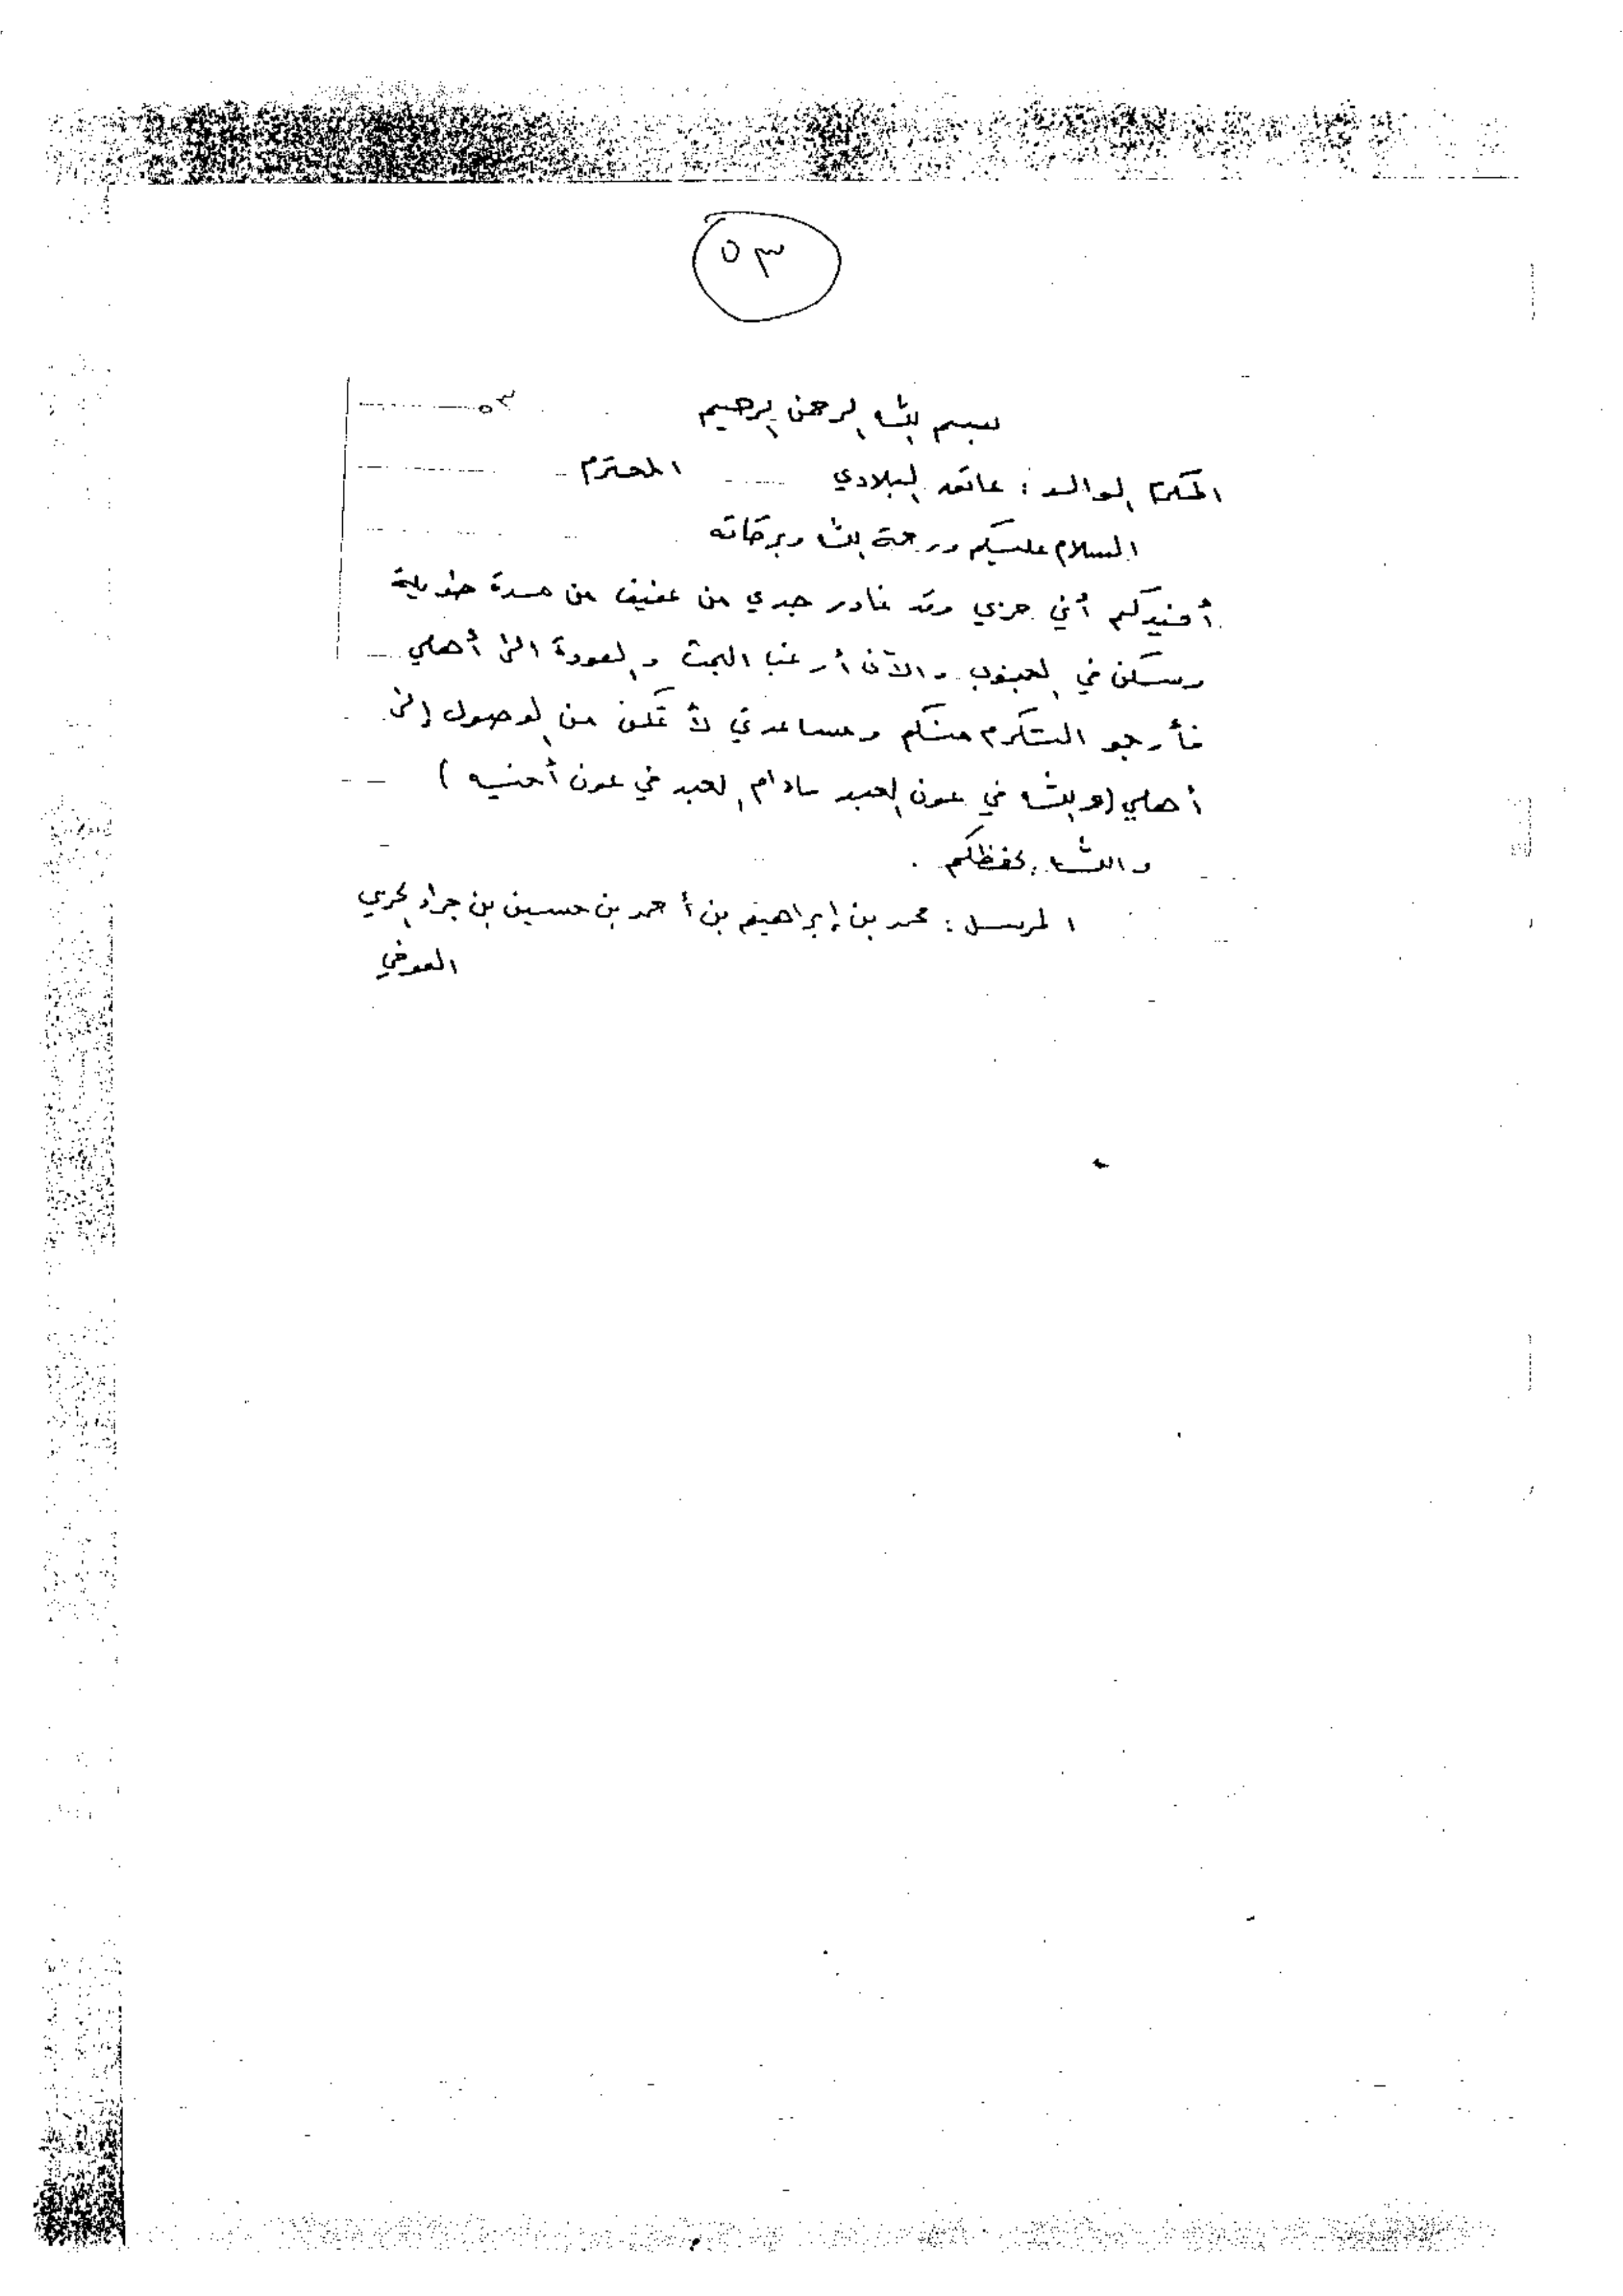 ٥٣
بسم الله الرحمن الرحيم ٥٣
المكرم الوالد : عاتق البلادي المحترم
السلام عليكم ورحمة الله وبركاته
أفيدكم أني حربي وقد غادر جدي من عفيف من مدة طويلة
وسكن في الجنوب والآن أرغب البحث والعودة الى أهلي
فأرجو التكرم منكم ومساعدتي لأتمكن من الوصول إلى
أهلي (والله في عون العبد مادام العبد في عون أخيه)
والله يحفظكم .
المرسل : محمد بن إبراهيم بن أحمد بن حسين بن جراد الحربي
العوفي